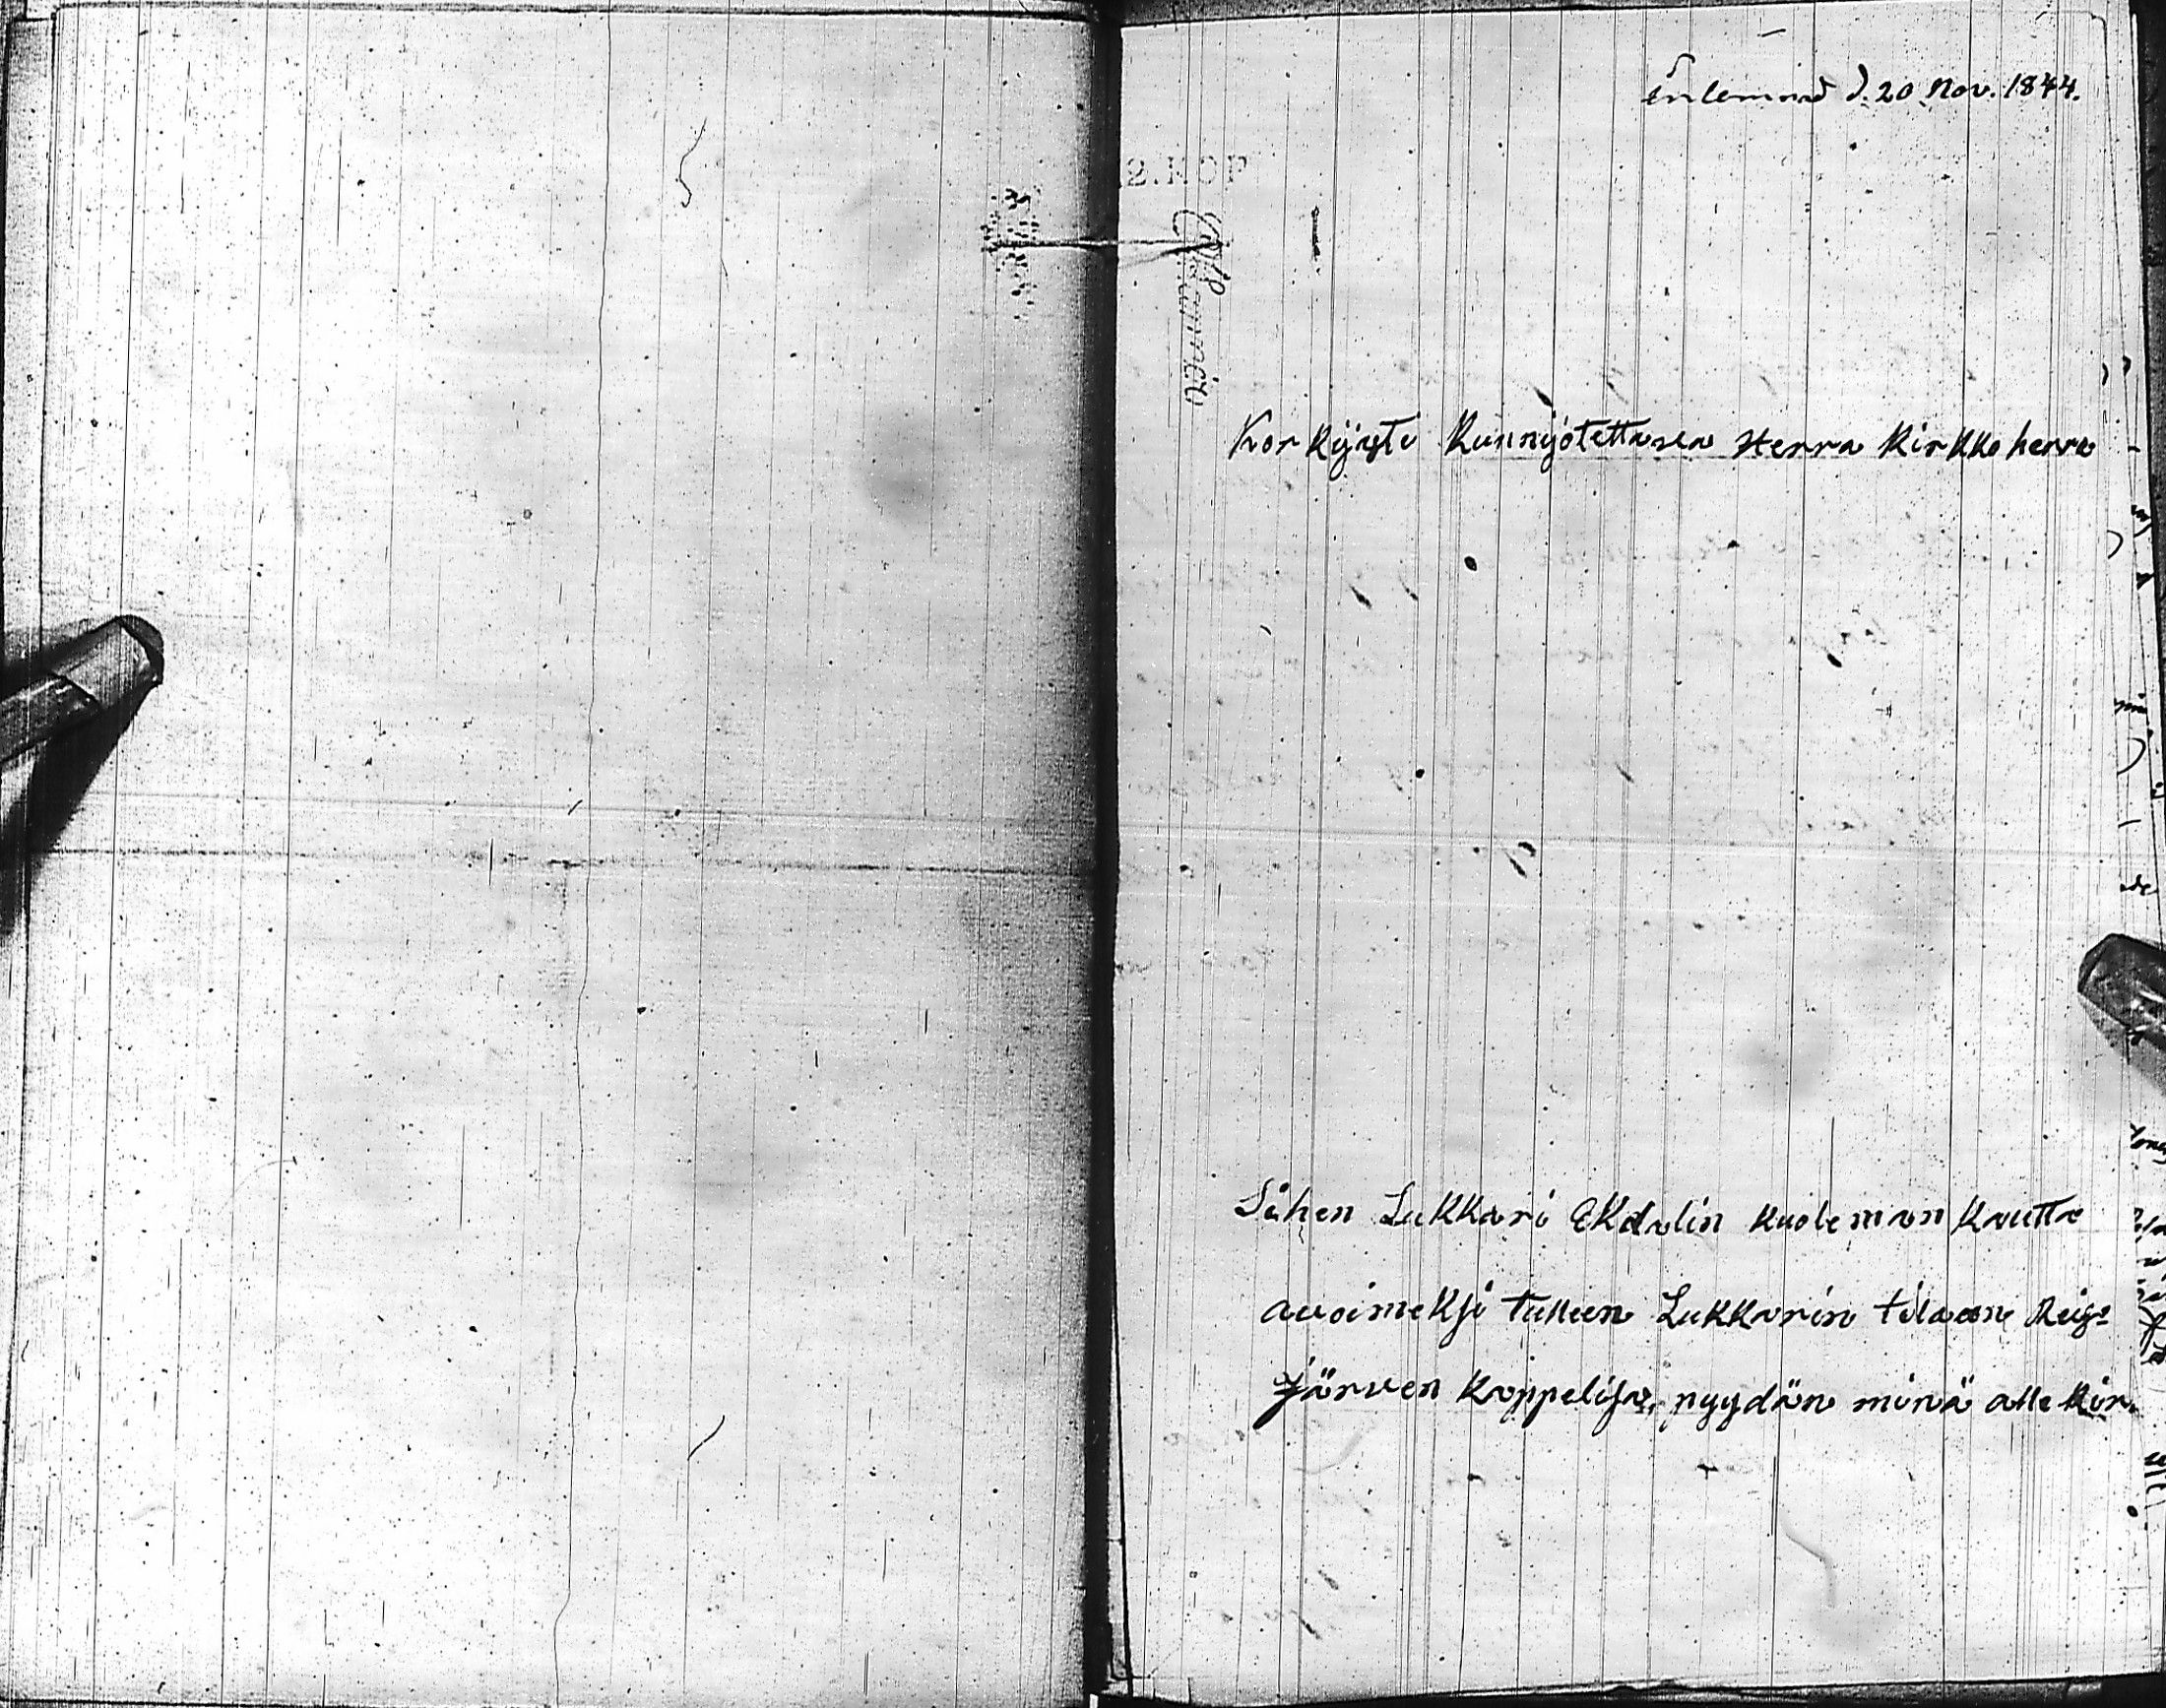 Inlemnad d. 20 Nov. 1844.
2.KOP
Korkijasti Kunnijotettava Herra Kirkkoherra
Siihen Lukkari Ekdalin kuoleman kautta
avoimeksi tulleen Lukkarin tilaan Reis-
järven Kappelisa, pyydän minä alle kir-